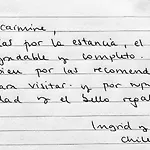 Carmine,
as por la estancia, el
gradable y completo.
ien por las recomend
ara visitar. y por
dad y el bello regal
Ingrid y
Chile